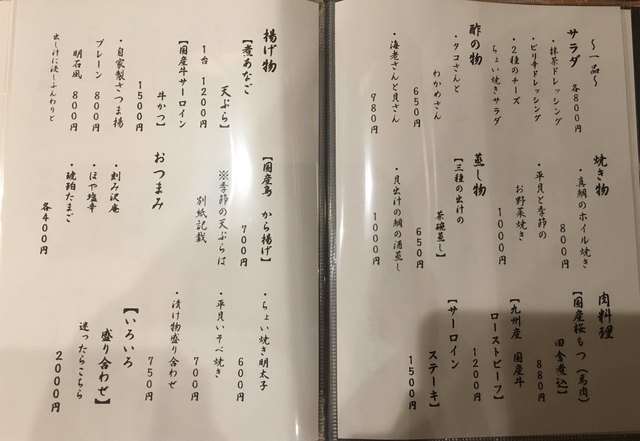 〜一品〜
サラダ 各800円
・抹茶ドレッシング
・ピリ辛ドレッシング
・2種のチーズ
ちょい焼きサラダ
酢の物
・タコさんと
わかめさん
650円
・海老さんと貝さん
980円
焼き物
・真鯛のホイル焼き
800円
・平貝と季節の
お野菜焼き
1000円
蒸し物
【三種の出汁の
茶碗蒸し】
650円
・貝出汁の鯛の酒蒸し
1000円
肉料理
【国産桜もつ(馬肉)
田舎煮込】
880円
【九州産 国産牛
ローストビーフ】
1200円
【サーロイン
ステーキ】
1500円
揚げ物
【煮あなご
天ぷら】
1台 1200円
【国産牛サーロイン
牛かつ】
1500円
・自家製さつま揚
プレーン 800円
明石風 800円
出し汁に浸しふんわりと
【国産鳥 から揚げ】
700円
※季節の天ぷらは
別紙記載
おつまみ
・刻み沢庵
・ほや塩辛
・琥珀たまご
各400円
・ちょい焼き明太子
600円
・平貝いそべ焼き
700円
・漬け物盛り合わせ
750円
【いろいろ
盛り合わせ】
迷ったらこちら
2000円